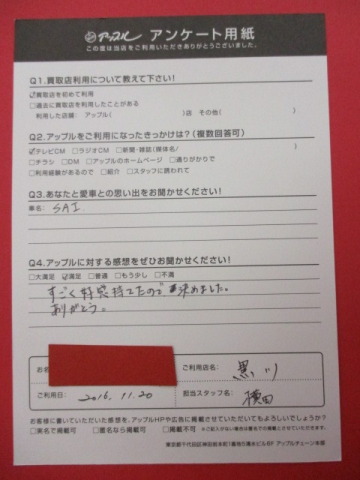 アップル アンケート用紙
この度は当店をご利用いただきありがとうございました。
Q1.買取店利用について教えて下さい!
☑買取店を初めて利用
□過去に買取店を利用したことがある
利用した店舗: アップル( )店 その他( )
Q2.アップルをご利用になったきっかけは?(複数回答可)
☑テレビCM □ラジオCM □新聞・雑誌(媒体名/ )
□チラシ □DM □アップルのホームページ □通りがかりで
□利用経験があるので □紹介 □スタッフに誘われて
Q3.あなたと愛車との思い出をお聞かせください!
車名: SAI
Q4.アップルに対する感想をぜひお聞かせください!
□大満足 ☑満足 □普通 □もう少し □不満
すごく好感持てたので決めました。
ありがとう。
お名
ご利用店名: 黒川
ご利用日: 2016.11.20
担当スタッフ名: 横田
お客様に書いていただいた感想を、アップルHPや広告に掲載させていただいてもよろしいでしょうか?
□実名で掲載可 □匿名なら掲載可 □掲載不可 ※ご記入がない場合は匿名での掲載とさせていただきます。